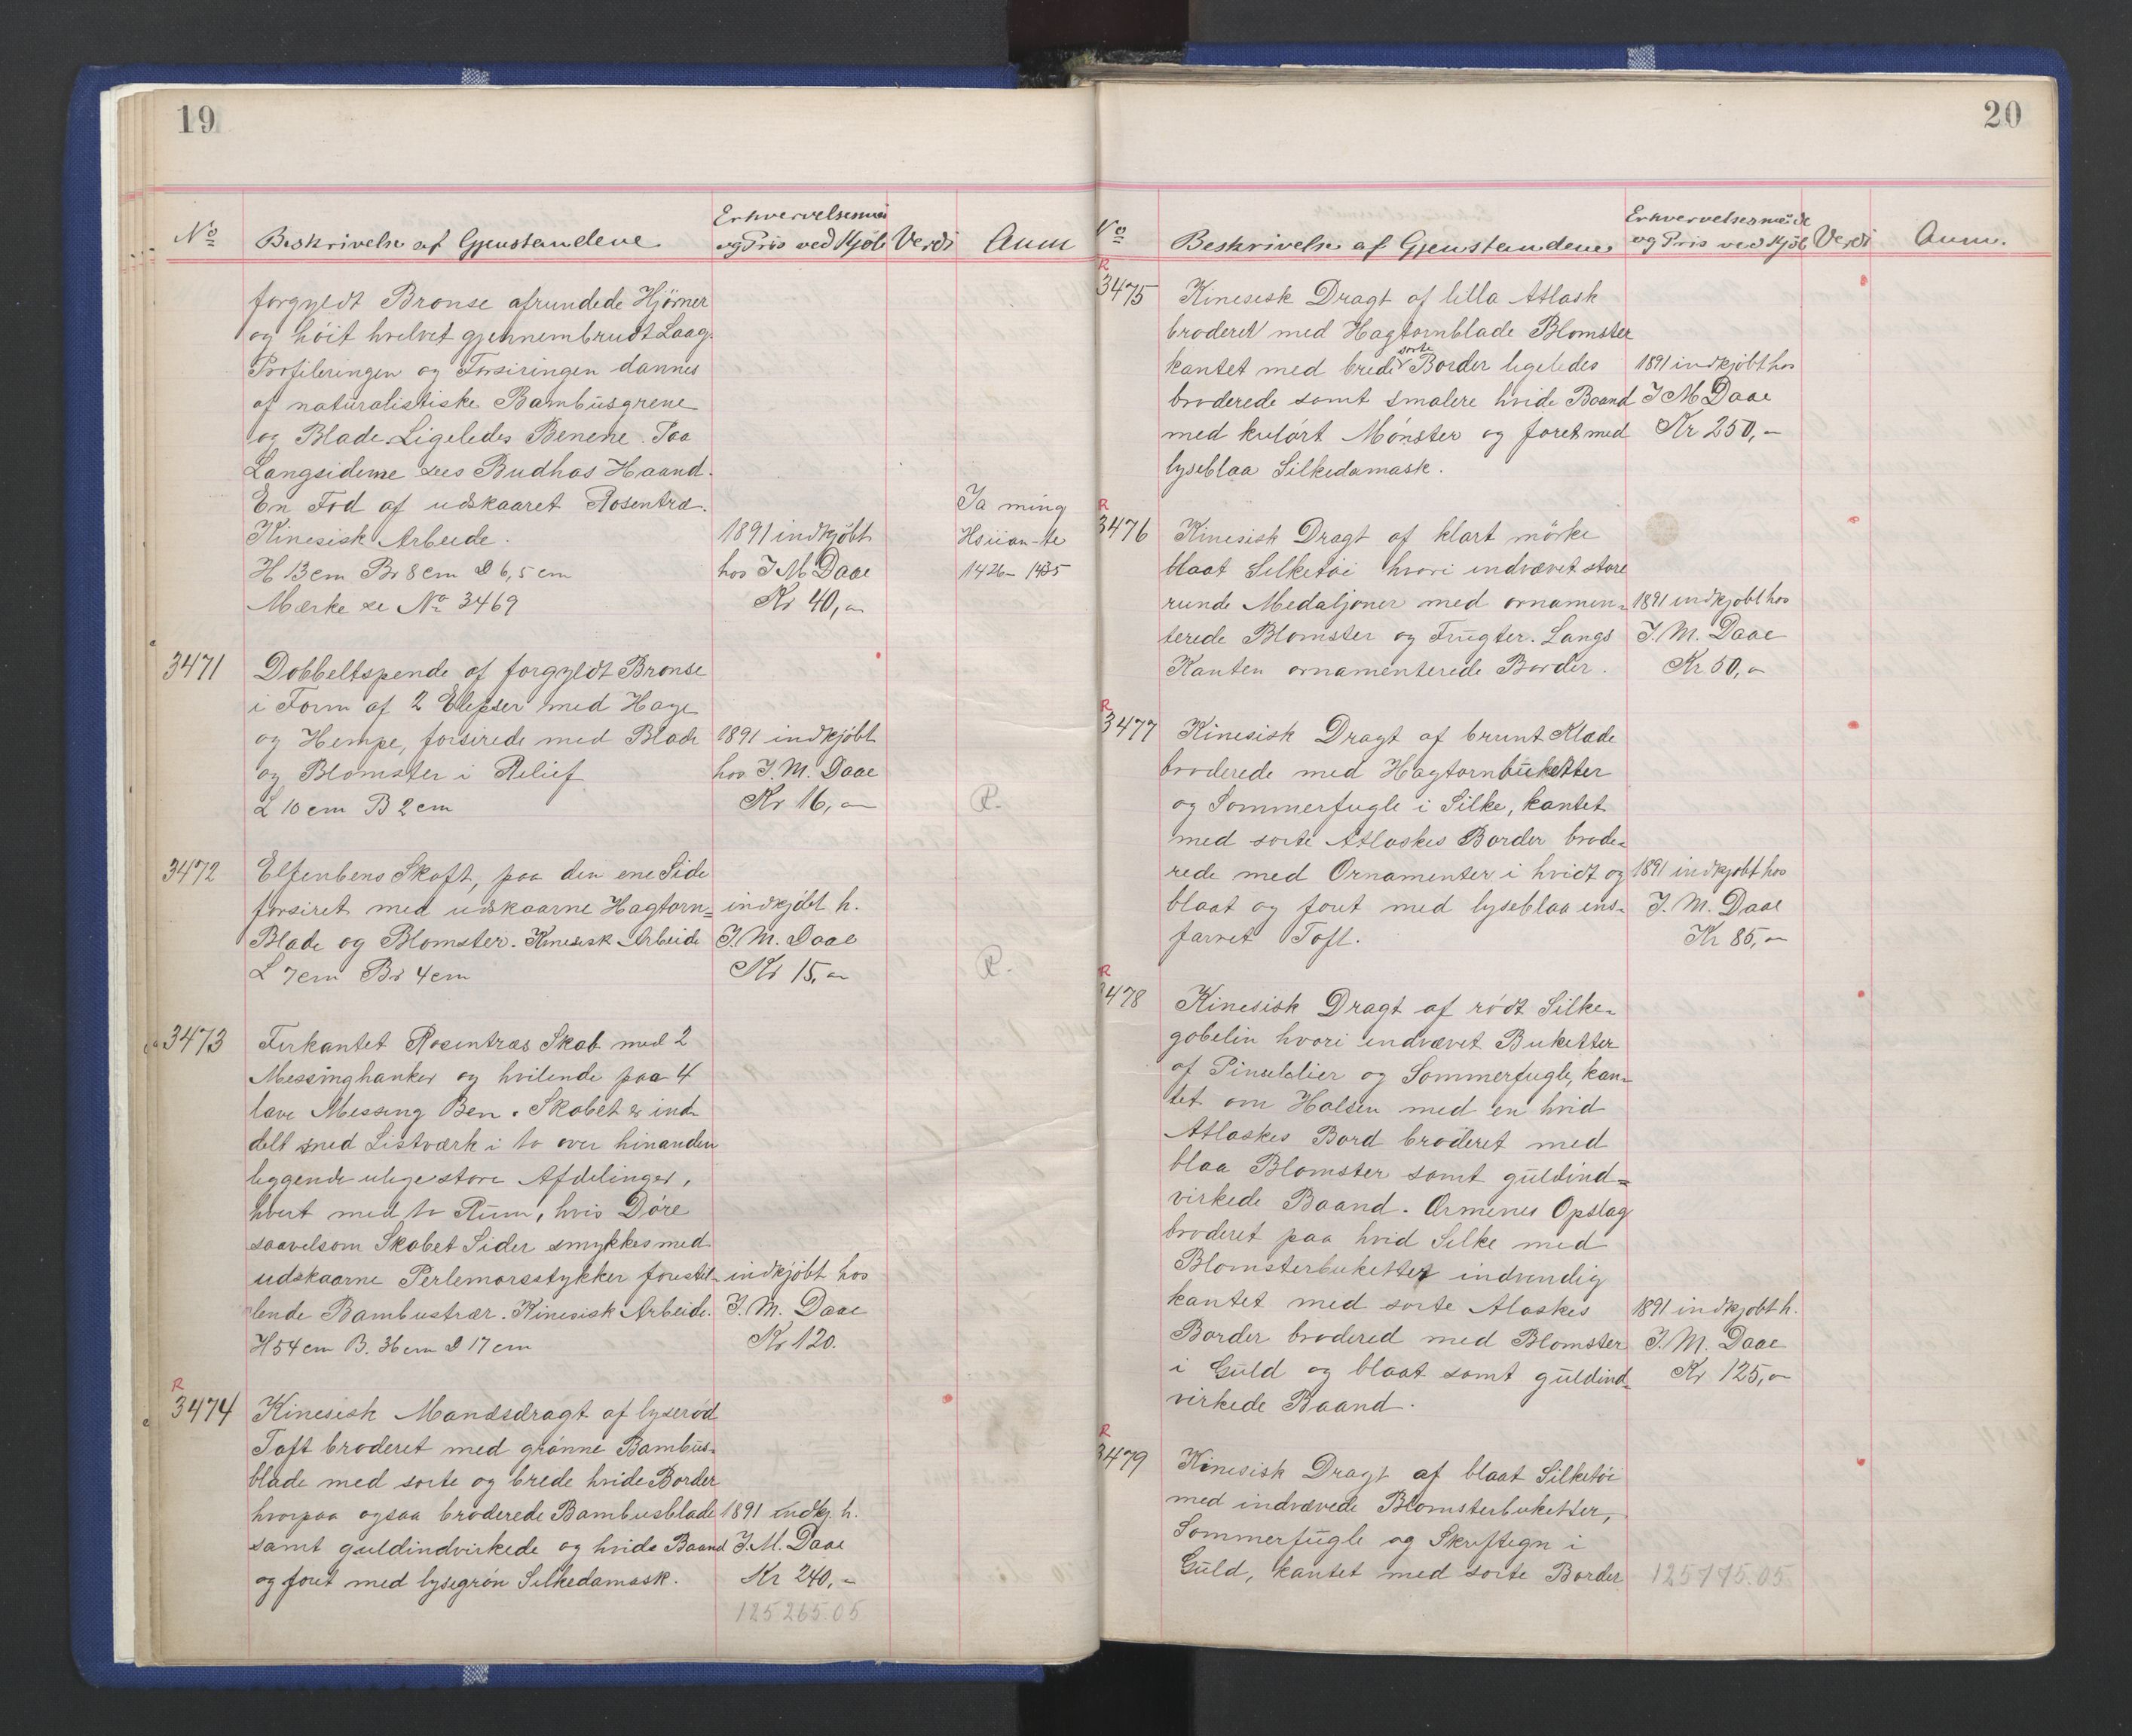 19
No Beskrivelse af Gjenstandene Erhvervelsesmaa og Pris ved Kjöb Verdi Anm
forgyldt Bronse afrundede Hjörner
og höit hvelvet gjennembrudt Laag.
Profileringen og Forsiringen dannes
af naturalistiske Bambusgrene
og Blade. Ligeledes Benene. Paa
Langsiderne sees Budhas Haand.
En Fod af udskaaret Rosentræ.
Kinesisk Arbeide.
H 13 cm Br 8 cm D 6,5 cm
Mærke se No 3469
1891 indkjöbt
hos J M Daae
Kr 40,-
Ta ming
Hsüan-te
1426-1435
3471 Dobbeltspende af forgyldt Bronse
i Form af 2 Elepser med Hage
og Hempe, forserede med Blade
og Blomster i Relief
L 10 cm B 2 cm
1891 indkjöbt
hos J. M. Daae
Kr 16,-
R.
3472 Elfenbens Skaft, paa den ene Side
forsiret med udskaarne Hagtorn=
Blade og Blomster. Kinesisk Arbeide
L 7 cm Br 4 cm
indkjöbt h.
J. M. Daae
Kr 15,-
R.
3473 Firkantet Rosentræs Skab med 2
Messinghanker og hvilende paa 4
lave Messing Ben. Skabet er ind-
delt med Listværk i to over hinanden
liggende ulige store Afdelinger,
hvert med to Rum, hvis Döre
saavelsom Skabet Sider smykkes med
udskaarne Perlemorsstykker forestil-
lende Bambustrær. Kinesisk Arbeide.
H 54 cm B. 36 cm D 17 cm
indkjöbt hos
J. M. Daae
Kr 120.
R
3474 Kinesisk Mandsdragt af lyseröd
Taft broderet med grönne Bambus-
blade med sorte og brede hvide Border
hvorpaa ogsaa broderede Bambusblade
samt guldindvirkede og hvide Baand
og foret med lysegrön Silkedamask.
1891 indkj. h.
J. M. Daae
Kr 240,-
125265.05
20
No Beskrivelse af Gjenstandene Erhvervelsesmaade og Pris ved Kjöb Verdi Anm.
R
3475 Kinesisk Dragt af lilla Atlask
broderet med Hagtornblade Blomster
kantet med brede sorte Border ligeledes
broderede samt smalere hvide Baand
med kulört Mönster og foret med
lyseblaa Silkedamask.
1891 indkjöbt hos
J M Daae
Kr 250,-
R
3476 Kinesisk Dragt af klart mörke
blaat Silketöi hvori indvævet store
runde Medaljoner med ornamen=
terede Blomster og Frugter. Langs
Kanten ornamenterede Border.
1891 indkjobt hos
J. M. Daae
Kr 50,-
R
3477 Kinesisk Dragt af brunt Klæde
broderede med Hagtornbuketter
og Sommerfugle i Silke, kantet
med sorte Atlaskes Border brode=
rede med Ornamenter i hvidt og
blaat og foret med lyseblaa ens-
farvet Taft.
1891 indkjobt hos
J. M. Daae
Kr 85,-
R
3478 Kinesisk Dragt af rödt Silke-
gobelin hvori indvævet Buketter
af Sommerfugle, kan-
tet om Halsen med en hvid
Atlaskes Bord broderet med
blaa Blomster samt guldind=
virkede Baand. Ærmenes Opslag
broderet paa hvid Silke med
Blomsterbuketter indvendig
kantet med sorte Alaskes
Border brodered med Blomster
i Guld og blaat samt guldind-
virkede Baand.
1891 indkjobt h.
J. M. Daae
Kr 125,-
R
3479 Kinesisk Dragt af blaat Silketöi
med indvævede Blomsterbuketter,
Sommerfugle og Skriftegn i
Guld, kantet med sorte Border
125775.05